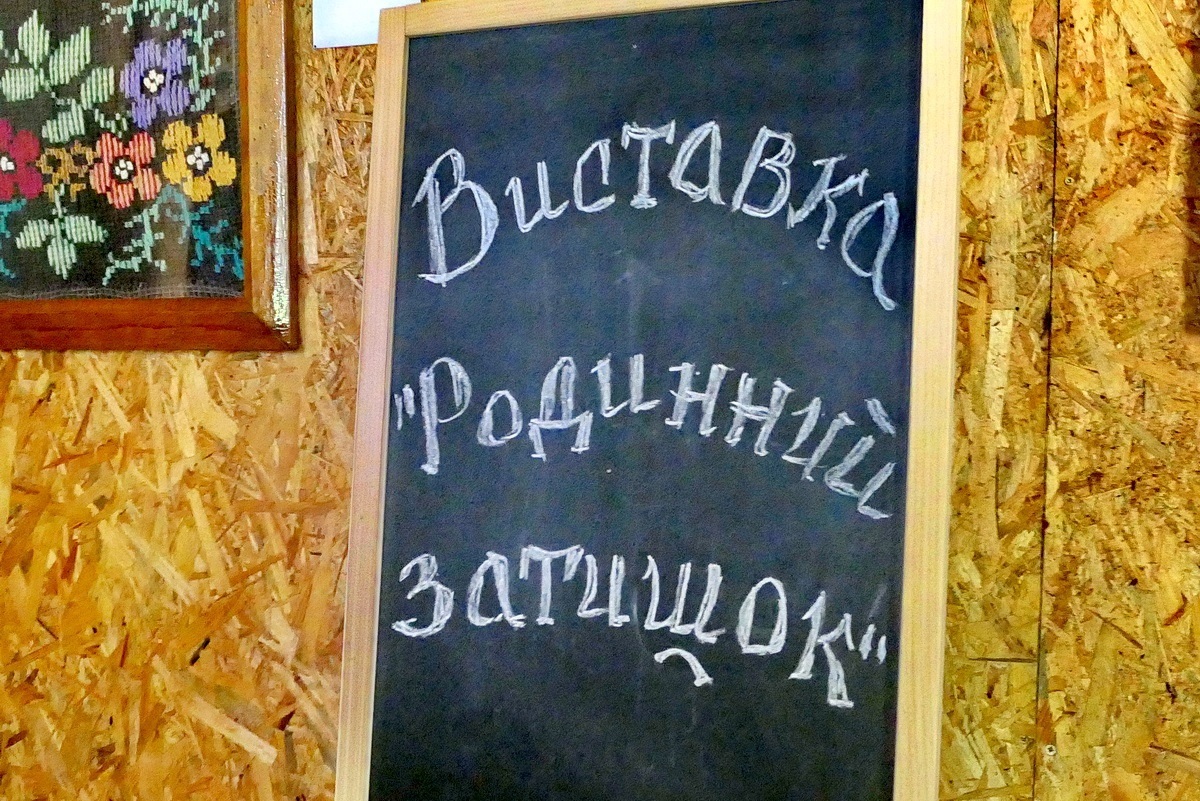 Виставка
"Родинний
затишок"